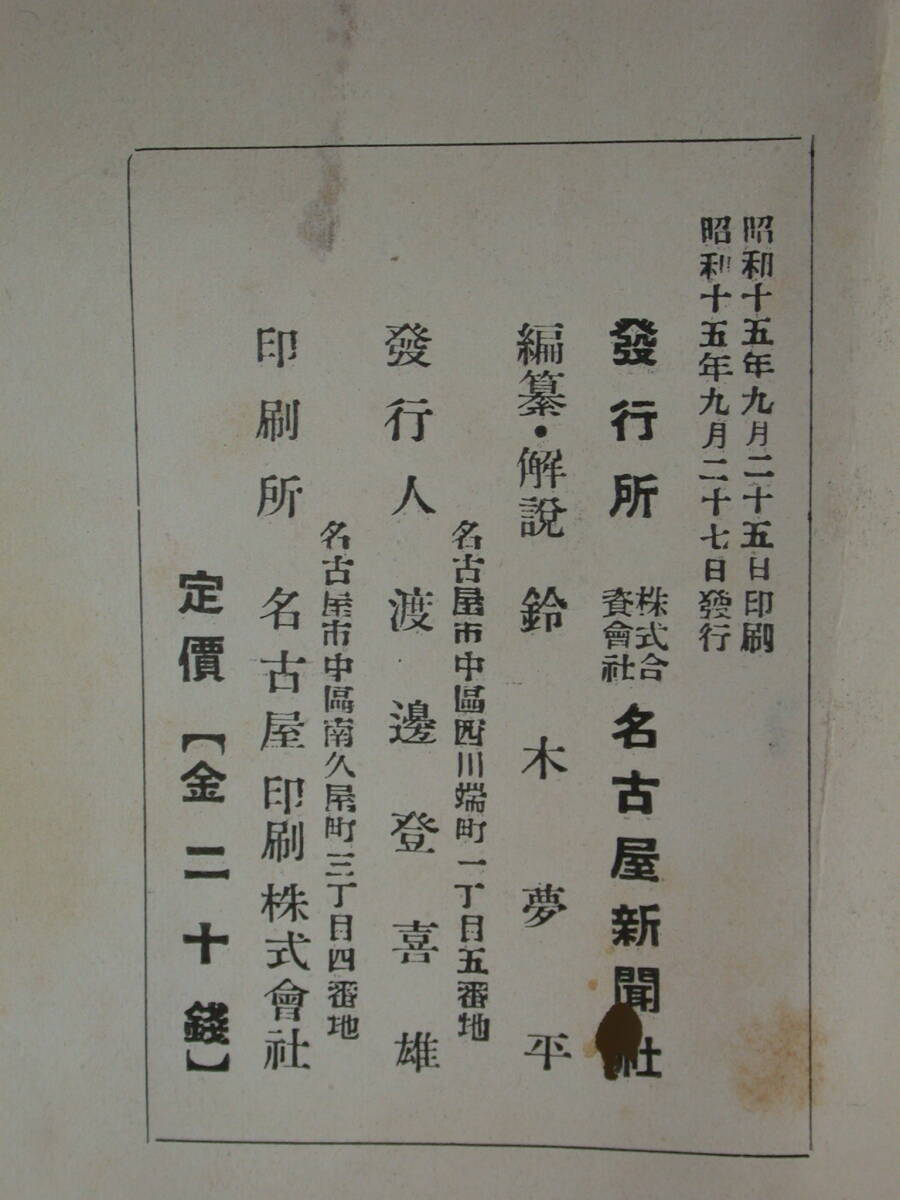 昭和十五年九月二十五日印刷
昭和十五年九月二十七日發行
發行所 株式合資會社 名古屋新聞社
編纂・解說 鈴木夢平
名古屋市中區西川端町一丁目五番地
發行人 渡邊登喜雄
名古屋市中區南久屋町三丁目四番地
印刷所 名古屋印刷株式會社
定價【金二十錢】